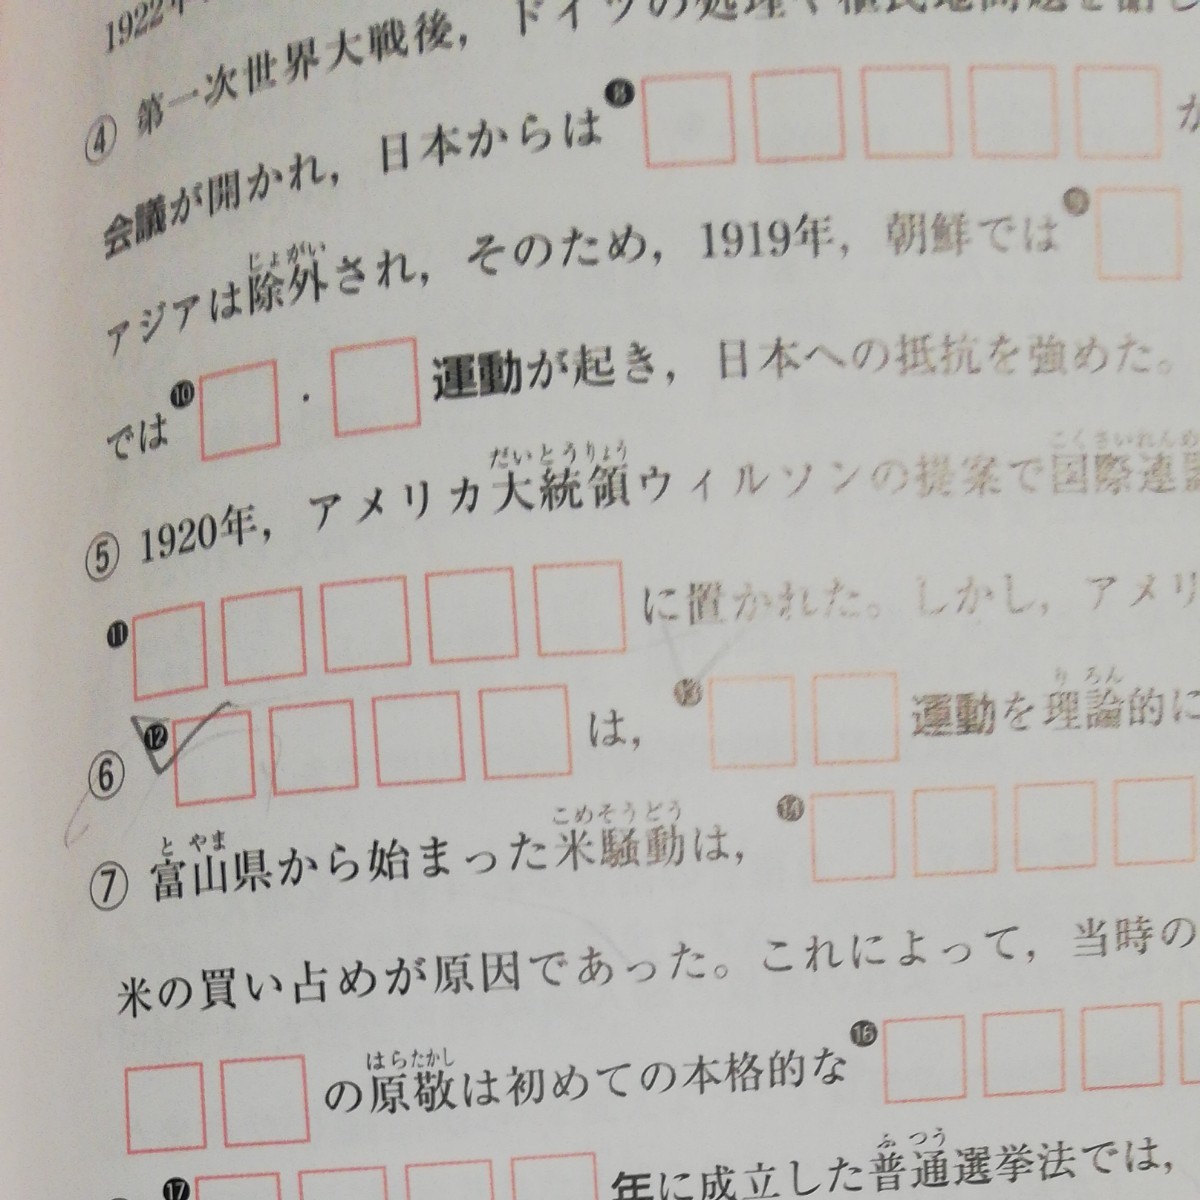 1922年
④ 第一次世界大戦後，ドイツの処理や植民地問題を話し
会議が開かれ，日本からは❽□□□□□が
アジアは除外され，そのため，1919年，朝鮮では❾□
じょがい
では❿□・□運動が起き，日本への抵抗を強めた。
⑤ 1920年，アメリカ大統領ウィルソンの提案で国際連盟
だいとうりょう
こくさいれんめ
⓫□□□□□に置かれた。しかし，アメリ
⑥ ⓬□□□□は，⓭□□運動を理論的に
りろん
⑦ 富山県から始まった米騒動は，⓮□□□□
とやま
こめそうどう
米の買い占めが原因であった。これによって，当時の
□□の原敬は初めての本格的な⓰□□□□
はらたかし
⓱□□□□年に成立した普通選挙法では，
ふつう